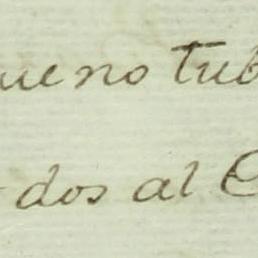 ueno tub
dos al C